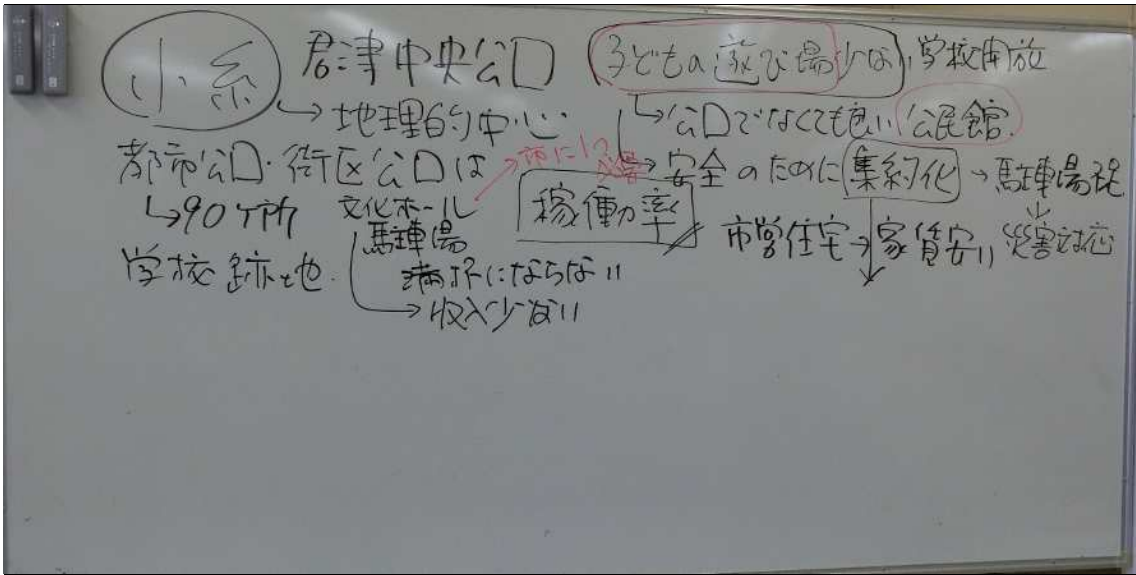 小糸 君津中央公口 子どもの遊び場少ない 学校開放
→地理的中心 →公口でなくても良い 公民館
都市公口・街区公口は →市に1つ必要 →安全のために 集約化→駐車場
→90ヶ所 文化ホール 稼働率 市営住宅→家賃安い 災害対応
駐車場
学校跡地 満杯にならない
→収入少ない